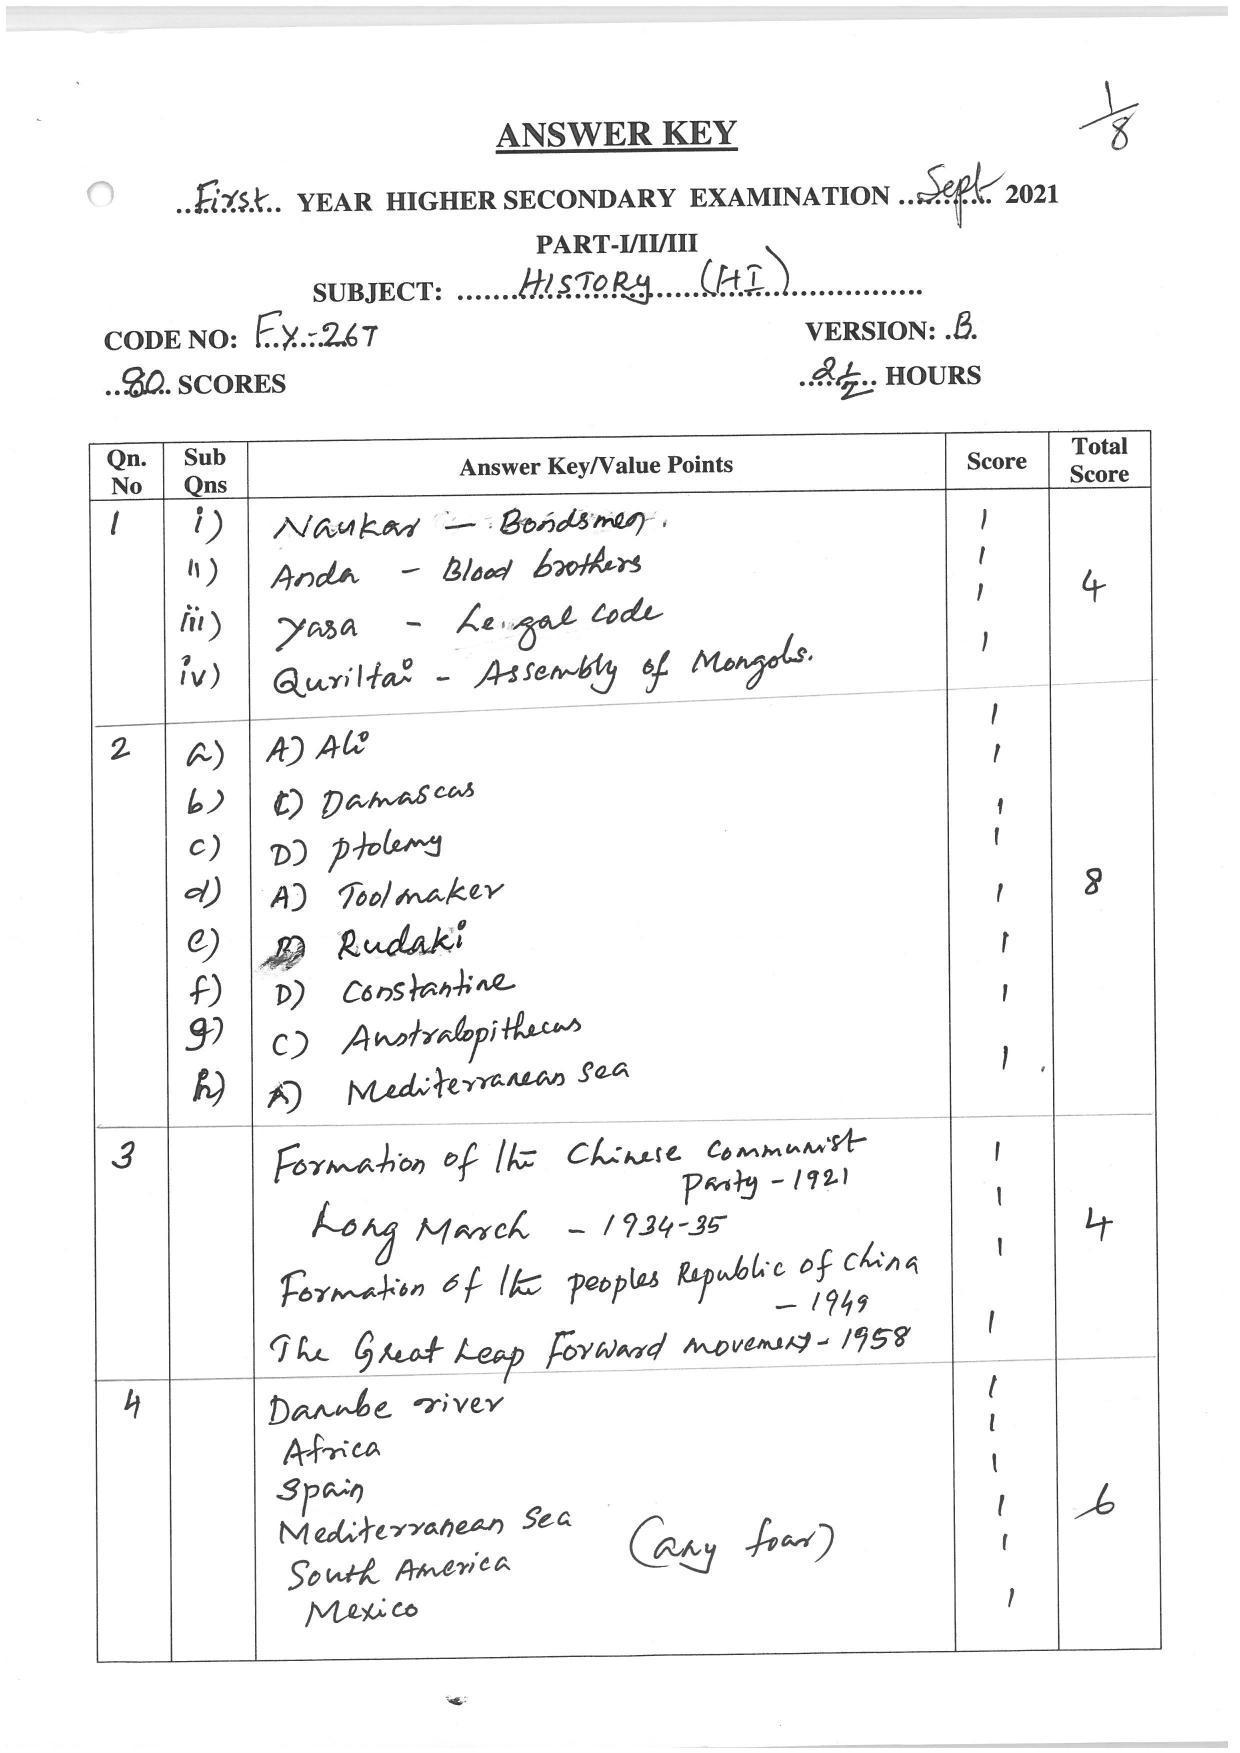 1/8
ANSWER KEY
..First.. YEAR HIGHER SECONDARY EXAMINATION ..Sept.. 2021
PART-I/II/III
SUBJECT: .......HISTORY (HI)................
CODE NO: F.Y.-267
VERSION: .B.
..80.. SCORES
..2 1/2.. HOURS
Qn. No | Sub Qns | Answer Key/Value Points | Score | Total Score
1 i) Naukar – Bondsmen. 1
ii) Anda – Blood brothers 1
iii) Yasa – Legal code 1 4
iv) Quriltai – Assembly of Mongols. 1
2 a) A) Ali 1
b) C) Damascus 1
c) D) Ptolemy 1
d) A) Toolmaker 1 8
e) B) Rudaki 1
f) D) Constantine 1
g) C) Australopithecus 1
h) A) Mediterranean Sea 1
3 Formation of the Chinese Communist 1
Party – 1921
Long March – 1934-35 1 4
Formation of the peoples Republic of China 1
– 1949
The Great Leap Forward movement – 1958 1
4 Danube river 1
Africa 1
Spain 1
Mediterranean Sea (any four) 1 6
South America 1
Mexico 1